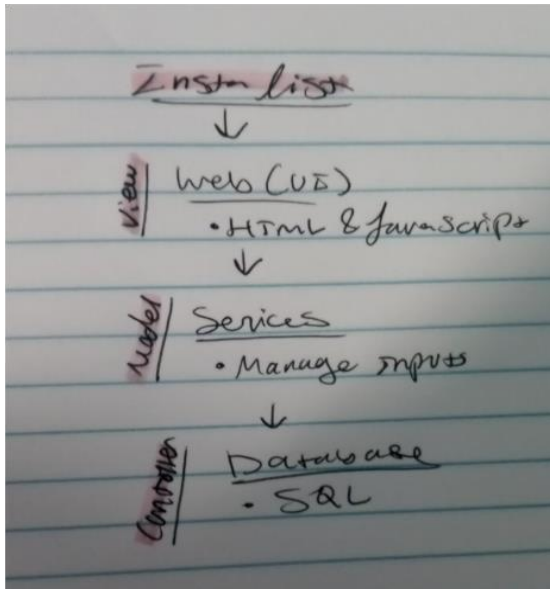 Insta list
↓
View
Web (UI)
• HTML & JavaScript
↓
Model
Services
• Manage inputs
↓
Controller
Database
• SQL